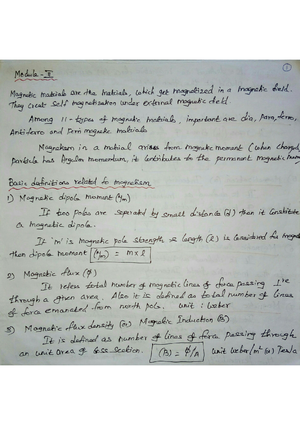 1
Module - II
Magnetic materials are the materials, which get magnetized in a magnetic field.
They creat self magnetisation under external magnetic field
Among 11 - types of magnetic materials, important are dia, para, ferro,
Antiferro and ferri magnetic materials
Magnetism in a material arises from magnetic moment (when charged
particle has angular momentum, it contributes to the permanent magnetic
Basic definitions related to magnetism
1) Magnetic dipole moment (μm)
If two poles are separated by small distance (d) then it constitute
a magnetic dipole.
If 'm' is magnetic pole strength & length (l) is considered for
then dipole moment (μm) = m x l
2) Magnetic flux (ϕ)
It refers total number of magnetic lines of force passing 1re
through a given area. Also it is defined as total number of lines
of force emanated from north pole. unit : weber
3) Magnetic flux density (or) Magnetic Induction (B)
It is defined as number of lines of force passing through
an unit area of cross section. (B) = ϕ/A unit weber/m² (or) Tesla